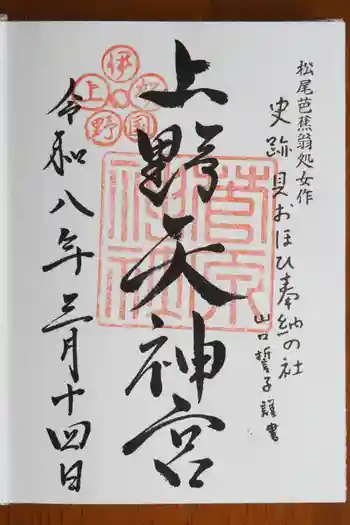 松尾芭蕉翁処女作
史跡 貝おほひ奉納の社
山口誓子謹書
上野天神宮
令和八年三月十四日
伊賀国上野
菅原神社